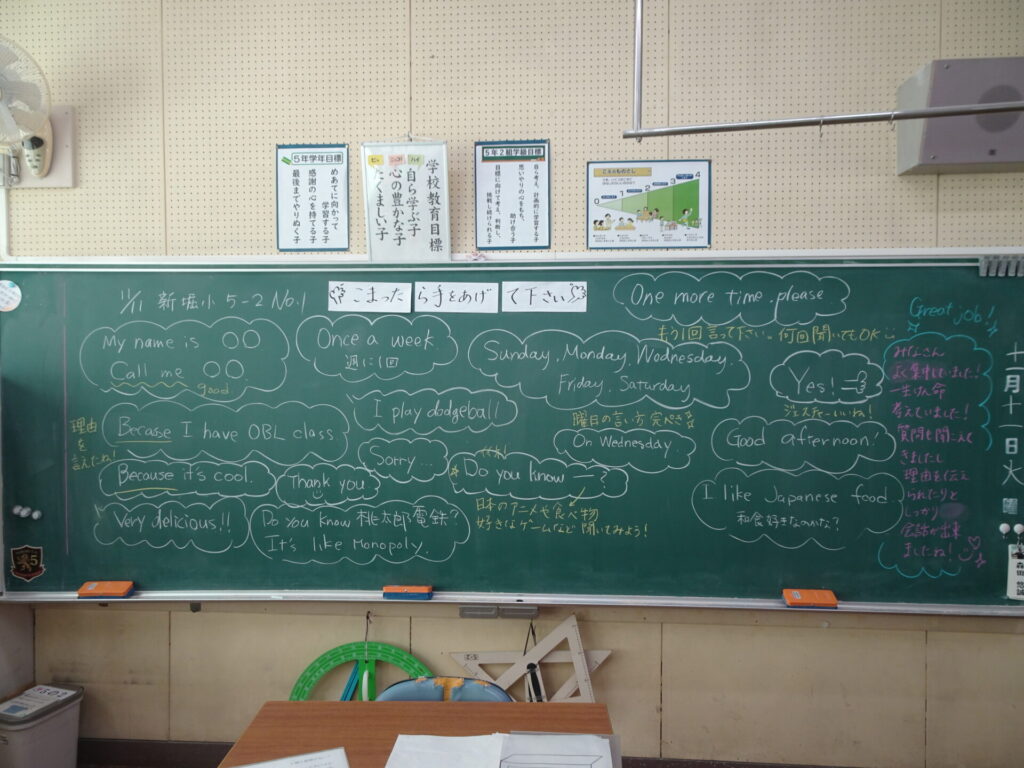 5年学年目標
めあてに向かって
学習する子
感謝の心を持てる子
最後までやりぬく子
学校教育目標
自ら学ぶ子
心の豊かな子
たくましい子
5年2組学級目標
自ら考え、計画的に学習する子
思いやりの心をもち、
助け合う子
目標に向けて考え、判断し、
挑戦し続けられる子
0
1
2
3
4
11/11 新堀小 5-2 No.1
こまったら手をあげて下さい
One more time, please.
もう1回言って下さい。何回聞いてもOK
My name is ○○
Call me ○○.
good
Once a week
週に1回
Sunday, Monday, Wednesday,
Friday, Saturday
曜日の言い方完ぺき☆
Yes!
ジェスチャーいいね!
理由
を
言えたね!
Becasse I have OBL class.
I play dodgeball
Sorry...
On Wednesday.
Good afternoon!
Because it's cool.
Thank you
Do you know ー?
日本のアニメや食べ物
好きなゲームなど聞いてみよう!
I like Japanese food.
和食好きなのかな?
Very delicious!!
Do you know 桃太郎電鉄?
It's like Monopoly.
Great job!
みなさん
よく集中していました!
一生けん命
考えていました!
質問も聞こえて
きましたし
理由を伝え
られたりと
しっかり
会話が出来
ましたね!
十一月十一日火
5